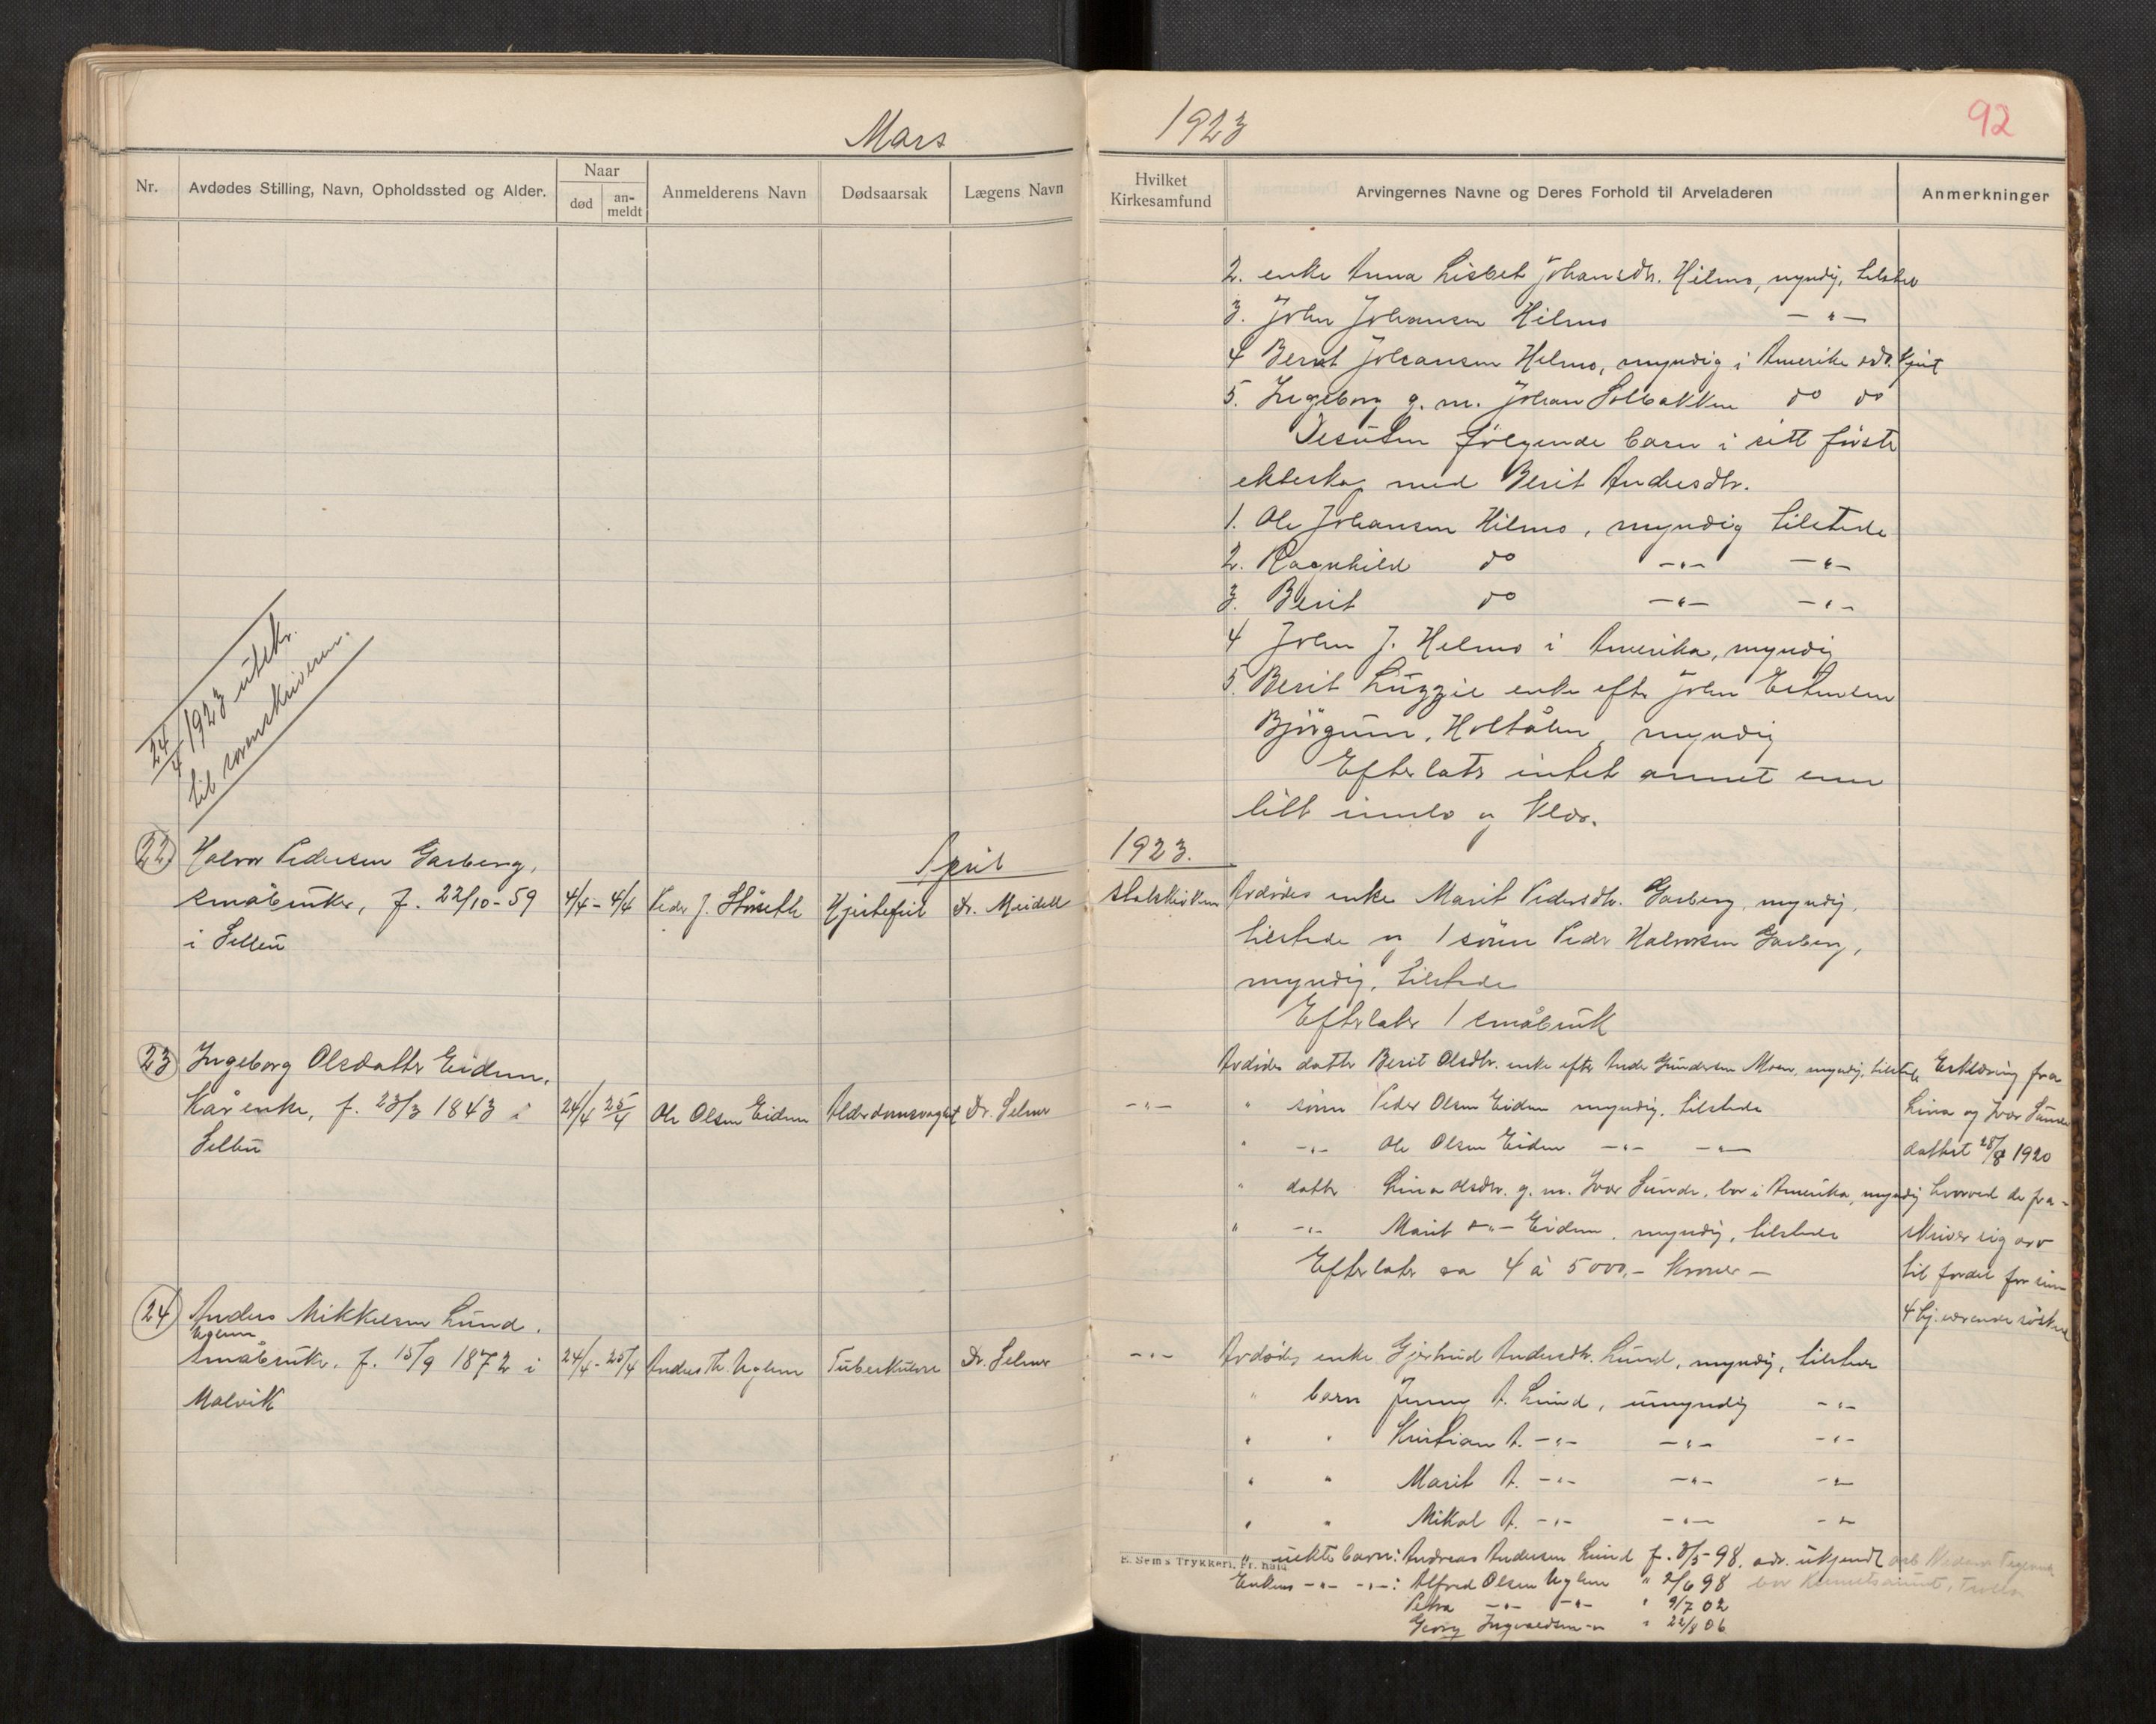 Mars
1923
92
Nr.
Avdødes Stilling, Navn, Opholdssted og Alder.
Naar
død
an-
meldt
Anmelderens Navn
Dødsaarsak
Lægens Navn
Hvilket
Kirkesamfund
Arvingernes Navne og Deres Forhold til Arveladeren
Anmerkninger
2. enke Anna Lisbet Johansdtr. Hilmo, myndig, tilsted
3. John Johansen Hilmo — " —
4 Bernt Johansen Hilmo, myndig i Amerika adr. kjent
5. Ingeborg g. m. Johan Solbakken do do
Desuten følgende barn i sitt første
ekteskap med Berit Andersdtr.
1. Ole Johansen Hilmo, myndig tilstede
2. Ragnhild do — " — — " —
3. Berit do — " — — " —
4 John J. Helmo i Amerika, myndig
5. Berit Luzzie enke efter John Estensen
Bjørgum, Holtålen, myndig
Efterlater intet annet enn
litt innbo og klær.
24/4 1923 utskr.
til sorenskriveren.
April
1923.
22
Halvor Pedersen Garberg,
småbruker, f. 22/10-59
i Selbu
4/4 - 4/4
Peder J. Støseth
Hjertefeil
Dr. Meidell
statskirken
Avdødes enke Marit Pedersdtr. Garberg, myndig,
tilstede og 1 sønn Peder Halvorsen Garberg,
myndig, tilstede
Efterlater 1 småbruk
23
Ingeborg Olsdatter Eidem,
Kårenke, f. 23/3 1843 i
Selbu
24/4 25/4
Ole Olsen Eidem
Alderdomsvaghet
Dr. Selmer
— " —
Avdødes datter Berit Olsdtr. enke efter Anders Gundersen Moen, myndig, tilstede
" sønn Peder Olsen Eidem myndig, tilstede
" — " — Ole Olsen Eidem — " — — " —
" datter Lina Olsdtr. g. m. Ivar Sunde, bor i Amerika, myndig
" — " — Marit — " — Eidem, myndig, tilstede
Efterlater ca 4 à 5000,- Kroner —
Erklæring fra
Lina og Ivar Sunde
datert 28/8 1920
hvorved de fra-
skriver sig arv
til fordel for sine
4 hj.værende søsken
24
Anders Mikkelsen Lund,
Uglem
småbruker, f. 15/9 1872 i
Malvik
24/4 - 25/4
Anders Th. Uglem
Tuberkulose
Dr. Selmer
— " —
Avdødes enke Gjertrud Andersdtr. Lund, myndig, tilstede
" barn Jenny A. Lund, umyndig — " —
" " Kristian A. — " — — " — — " —
" " Marit A. — " — — " — — " —
" " Mikal A. — " — — " — — " —
E. Sems Trykkeri, Fr. hald
" uekte barn: Andreas Andersen Lund f. 3/5-98, adr. ukjendt
Enkens — " — — " —: Alfred Olsen Uglem " 2/6 98 bor
Petra — " — — " — " 9/7 02
Georg Ingvaldsen — " " 22/8 06